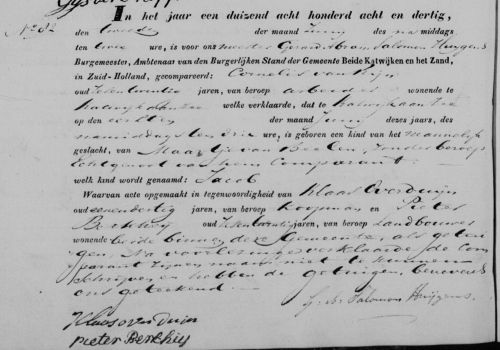 In het jaar een duizend acht honderd acht en dertig,
den tweede der maand Juny des na middags
ten twee ure, is voor ons meester Gerardt Bram Salomon Huygens
Burgemeester, Ambtenaar van den Burgerlijken Stand der Gemeente Beide Katwijken en het Zand,
in Zuid-Holland, gecompareerd: Cornelis van Rijn
oud jaren, van beroep arbeider wonende te
Katwijk aan Zee welke verklaarde, dat te Katwijk aan Zee
op den eersten der maand Juny dezes jaars, des
namiddags ten drie ure, is geboren een kind van het mannelijk
geslacht, van van Beelen, zonder beroep
Echtgenoot van hem Comparant
welk kind wordt genaamd: Jacob
Waarvan acte opgemaakt in tegenwoordigheid van Klaas Overduijn
oud eenendertig jaren, van beroep koopman en Pieter
Berkhey oud jaren, van beroep landbouwer
wonende beide binnen deze Gemeente, als getui-
gen. Na voorlezing verklaarde de Com-
parant niet te kunnen
schrijven en hebben de getuigen, benevens
ons geteekend
G. B. Salomon Huijgens
Klaas overduin
Pieter Berkhey